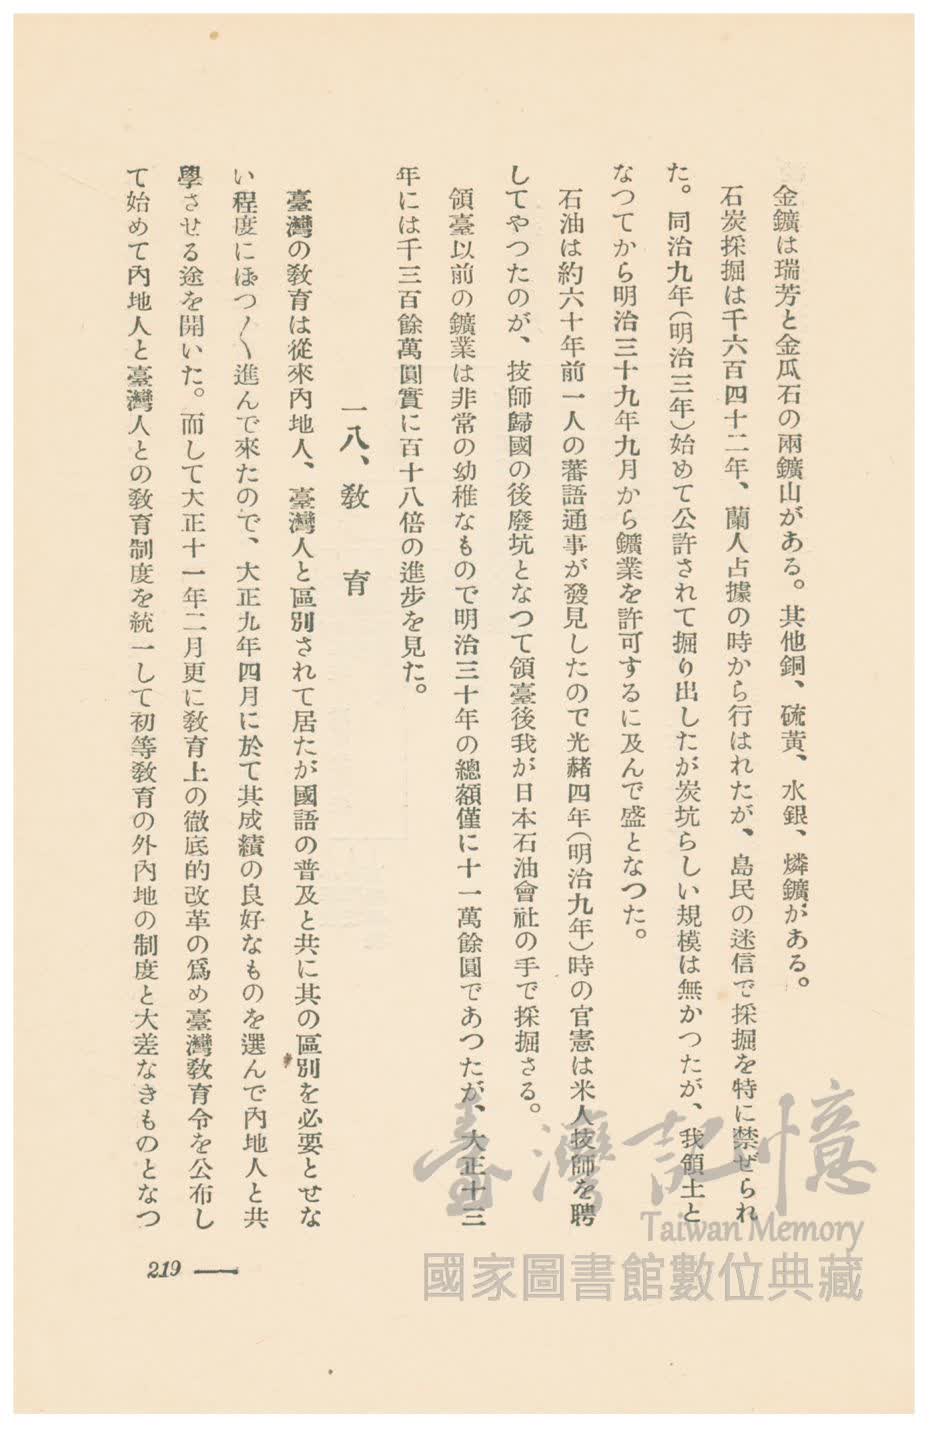 金鑛は瑞芳と金瓜石の兩鑛山がある。其他銅、硫黃、水銀、燐鑛がある。
石炭採掘は千六百四十二年、蘭人占據の時から行はれたが、島民の迷信で採掘を特に禁ぜられ
た。同治九年(明治三年)始めて公許されて掘り出したが炭坑らしい規模は無かつたが、我領土と
なつてから明治三十九年九月から鑛業を許可するに及んで盛となつた。
石油は約六十年前一人の蕃語通事が發見したので光赭四年(明治九年)時の官憲は米人技師を聘
してやつたのが、技師歸國の後廢坑となつて領臺後我が日本石油會社の手で採掘さる。
領臺以前の鑛業は非常の幼稚なもので明治三十年の總額僅に十一萬餘圓であつたが、大正十三
年には千三百餘萬圓實に百十八倍の進步を見た。
一八、敎育
臺灣の敎育は從來內地人、臺灣人と區別されて居たが國語の普及と共に其の區別を必要とせな
い程度にぽつ〱進んで來たので、大正九年四月に於て其成績の良好なものを選んで內地人と共
學させる途を開いた。而して大正十一年二月更に敎育上の徹底的改革の爲め臺灣敎育令を公布し
て始めて內地人と臺灣人との敎育制度を統一して初等敎育の外內地の制度と大差なきものとなつ
219
臺灣記憶
Taiwan Memory
國家圖書館數位典藏